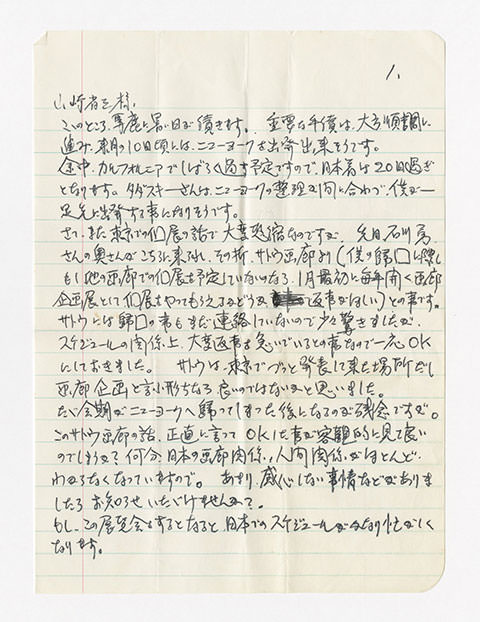 1.
山崎省三様
このところ、馬鹿に暑い日が続きます。 重要な手債は、大方順調に
進み、来月の10日頃には、ニューヨークを出発出来そうです。
途中、カルフォルニアでしばらく過す予定ですので、日本着は20日過ぎ
となります。タダスキーさんは、ニューヨークの整理が間に合わず、僕が一
足先に出発する事になりそうです。
さて、また東京での個展の話で大変恐縮なのですが 先日石川勇
さんの奥さんがこちらに来られ、その折、サトウ画廊より(僕の帰国に際し
もし他の画廊での個展を予定していないのなら、1月最初に毎年開く画廊
企画展として個展をやってもらえるかどうか 返事がほしい)との事です。
サトウには帰国の事もまだ連絡していないので少々驚きましたが、
スケジュールの関係上、大変返事を急いでいるとの事なので一応OK
にしておきました。 サトウは、東京でずっと発表して来た場所だし
画廊企画と言う形なら良いのではないかと思いました。
たゞ会期がニューヨークへ帰ってしまった後になるのが残念ですが。
このサトウ画廊の話、正直に言ってOKした事が客観的に見て良い
のでしょうか? 何分日本の画廊関係、人間関係がほとんど
わからなくなっていますので。 あまり、感心しない事情などがありま
したら お知らせいただけませんか?
もし、この展覧会をするとなると、日本でのスケジュールがかなり忙がしく
なります。